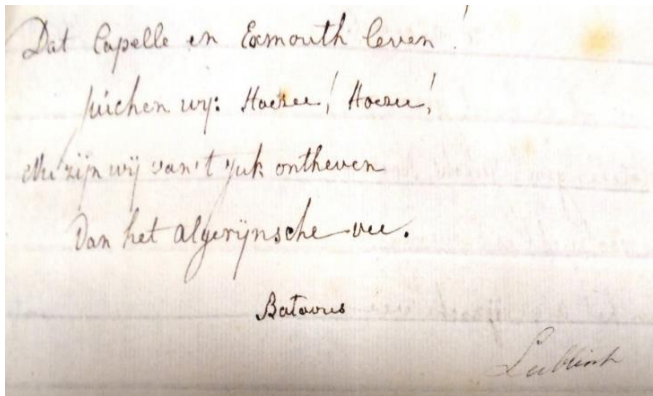 Dat Capelle en Exmouth leven!
juichen wij: Hoezee! Hoezee!
Nu zijn wij van't juk ontheven
Van het algerijnsche vee.
Batavus